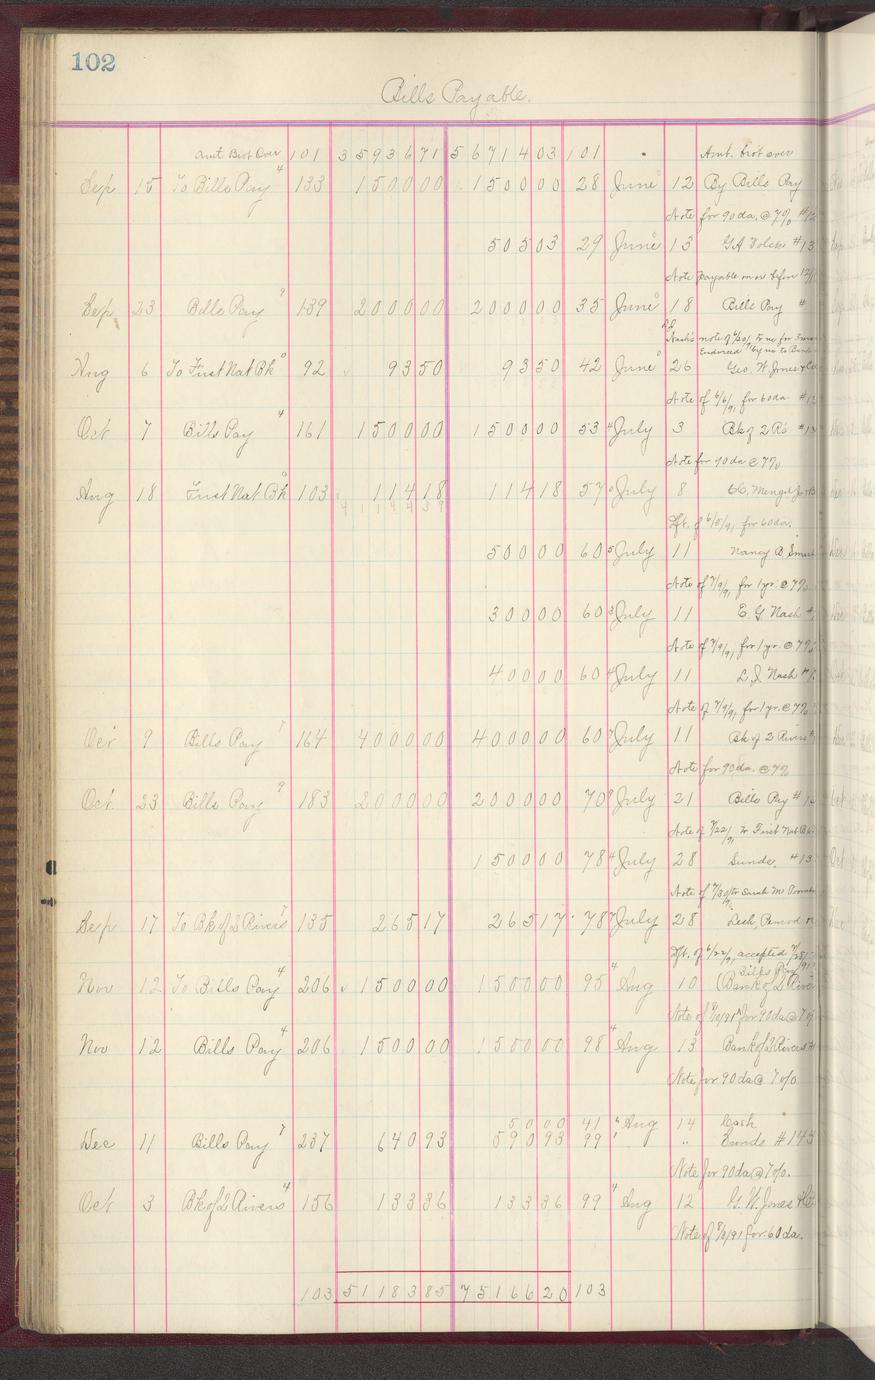 102
Bills Payable.
Amt Brot Over 101 3593671 5671403 101 Amt. brot over
Sep 15 To Bills Pay 4 133 150000 150000 28 June 12 By Bills Pay
Note for 90 da. @ 7%
50503 29 June 13 GA
Note payable on or before
Sep 23 Bills Pay 9 139 200000 200000 35 June 18 Bills Pay #
Nash's note of 6/20/91 to us for
Endorsed by us to
Aug 6 To First Nat Bk 92 9350 9350 42 June 26 Geo. W. Jones & Co
Note of 6/6/91 for 60 da.
Oct 7 Bills Pay 4 161 150000 150000 53 4 July 3 Bk of 2 Rs
Note for 90 da @ 7%
Aug 18 First Nat Bk 103 11418 11418 57 July 8
4111439
Dft. of 6/5/91 for 60 da.
50000 60 5 July 11 Nancy B.
Note of 7/9/91 for 1 yr. @ 7%
30000 60 3 July 11 E. G. Nash
Note of 7/9/91 for 1 yr. @ 7%
40000 60 4 July 11 L. J. Nash
Note of 7/9/91 for 1 yr. @ 7%
Oct 9 Bills Pay 7 164 400000 400000 60 7 July 11 Bk of 2 Rivers
Note for 90 da. @ 7%
Oct. 23 Bills Pay 9 183 200000 200000 70 9 July 21 Bills Pay #
Note of 7/22/91 to First Nat Bk
150000 78 4 July 28 Sunds. #13
Note of 7/30/91 to Sarah M.
Sep 17 To Bk of 2 Rivers 7 135 26517 26517 78 7 July 28
Dft. of 6/22/91 accepted
Bills Pay
Nov 12 To Bills Pay 4 206 150000 150000 95 4 Aug 10 (Bank of 2 River
Note of 8/10/91 for 90 da @ 7%
Nov 12 Bills Pay 4 206 150000 150000 98 4 Aug 13 Bank of 2 Rivers
Note for 90 da @ 7%
5000 41 Aug 14 Cash
Dec 11 Bills Pay 7 237 64093 59093 99 " Sunds #143
Note for 90 da @ 7%.
Oct 3 Bk of 2 Rivers 4 156 13336 13336 99 4 Aug 12 G. W. Jones & Co
Note of 8/1/91 for 60 da.
103 5118385 7516620 103